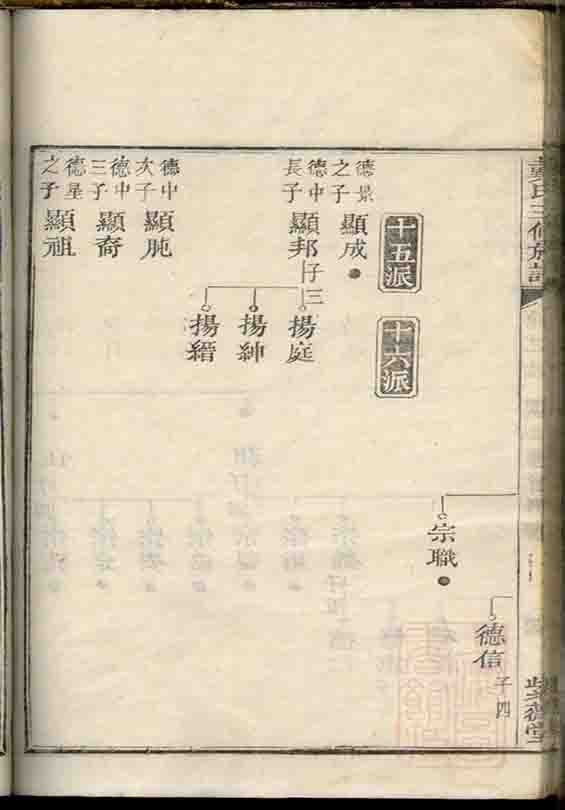 宗職
德信
子四
十五派
十六派
德景之子
顯成
德中長子
顯邦
子三
揚庭
揚紳
揚縉
德中次子
顯肫
德中三子
顯裔
德星之子
顯祖